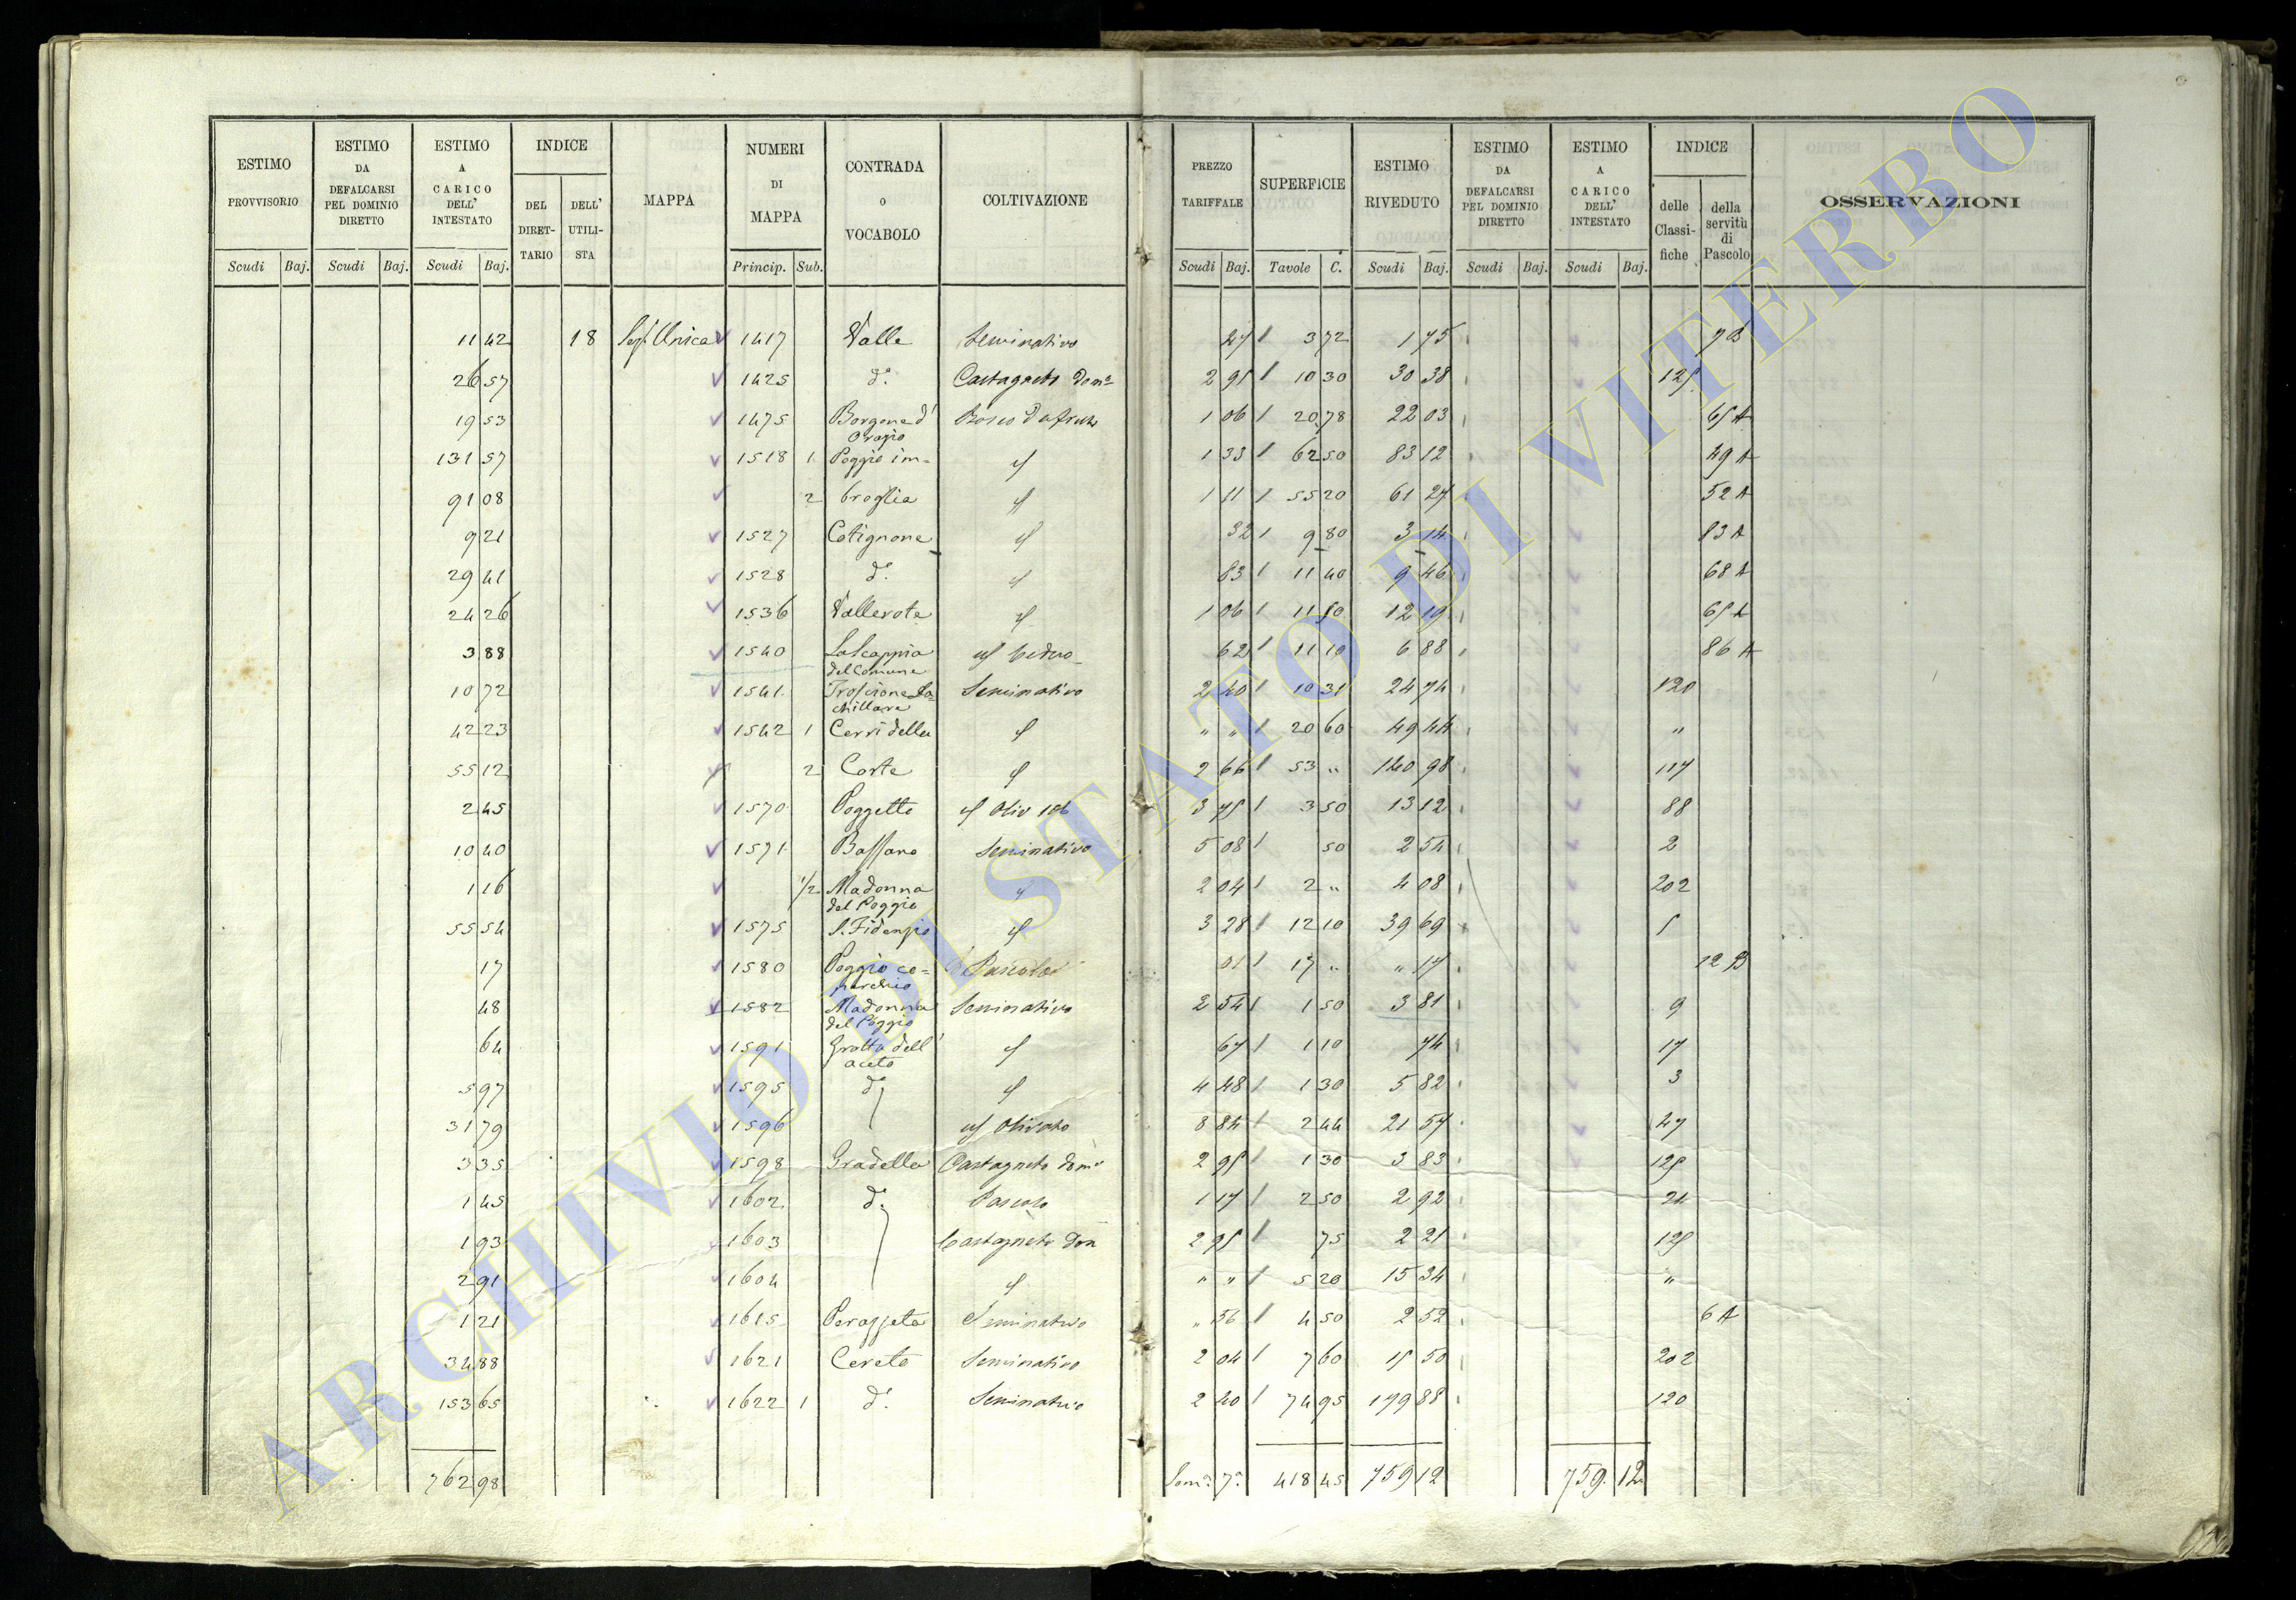 ESTIMO PROVVISORIO Scudi Baj.
ESTIMO DA DEFALCARSI PEL DOMINIO DIRETTO Scudi Baj.
ESTIMO A CARICO DELL' INTESTATO Scudi Baj.
INDICE DEL DIRETTARIO DELL' UTILISTA
MAPPA
NUMERI DI MAPPA Princip. Sub.
CONTRADA O VOCABOLO
COLTIVAZIONE
PREZZO TARIFFALE Scudi Baj.
SUPERFICIE Tavole C.
ESTIMO RIVEDUTO Scudi Baj.
ESTIMO DA DEFALCARSI PEL DOMINIO DIRETTO Scudi Baj.
ESTIMO A CARICO DELL' INTESTATO Scudi Baj.
INDICE delle Classifiche della servitù di Pascolo
OSSERVAZIONI
11 42 18 Sez. Unica 1417 Valle Seminativo 47 3 72 1 75 7 B
26 57 1425 d.º Castagneto dom.º 2 95 10 30 30 38 125
19 53 1475 Borgone d' Orazio Bosco da frutto 1 06 20 78 22 03 65 A
131 57 1518 1 Poggio im- 1 33 62 50 83 12 49 A
91 08 2 broglia 1 11 55 20 61 27 52 A
9 21 1527 Cotignone 32 9 80 3 14 83 A
29 41 1528 d.º 83 11 40 9 46 68 A
24 26 1536 Vallerote 1 06 11 50 12 19 65 A
3 88 1540 La Scappia del Comune Ceduo 62 11 10 6 88 86 A
10 72 1541 Seminativo 2 40 10 31 24 74 120
42 23 1542 1 Cerri della " " 20 60 49 44 "
55 12 2 Corte 2 66 53 " 140 98 117
2 45 1570 Poggetto Oliv 3 75 3 50 13 12 88
10 40 1571 Bassano Seminativo 5 08 50 2 54 2
1 16 1/2 Madonna del Poggio 2 04 2 " 4 08 202
55 54 1575 S. Fidenzio 3 28 12 10 39 69 5
17 1580 Poggio co- Pascolo 01 17 " " 17 12 B
48 1582 Madonna del Poggio Seminativo 2 54 1 50 3 81 9
64 1591 Grotta dell' aceto 67 1 10 74 17
5 97 1595 d.º 4 48 1 30 5 82 3
31 79 1596 Olivato 8 84 2 44 21 57 47
3 35 1598 Gradella Castagneto dom.º 2 95 1 30 3 83 125
1 45 1602 d.º Pascolo 1 17 2 50 2 92 24
1 93 1603 Castagneto dom 2 95 75 2 21 125
2 91 1604 " " 5 20 15 34 "
1 21 1615 Perazzeta Seminativo " 56 4 50 2 52 6 A
34 88 1621 Cereto Seminativo 2 04 7 60 15 50 202
153 65 1622 1 d.º Seminativo 2 40 74 95 179 88 120
762 98 Som.ª 7.ª 418 45 759 12 759. 12
ARCHIVIO DI STATO DI VITERBO